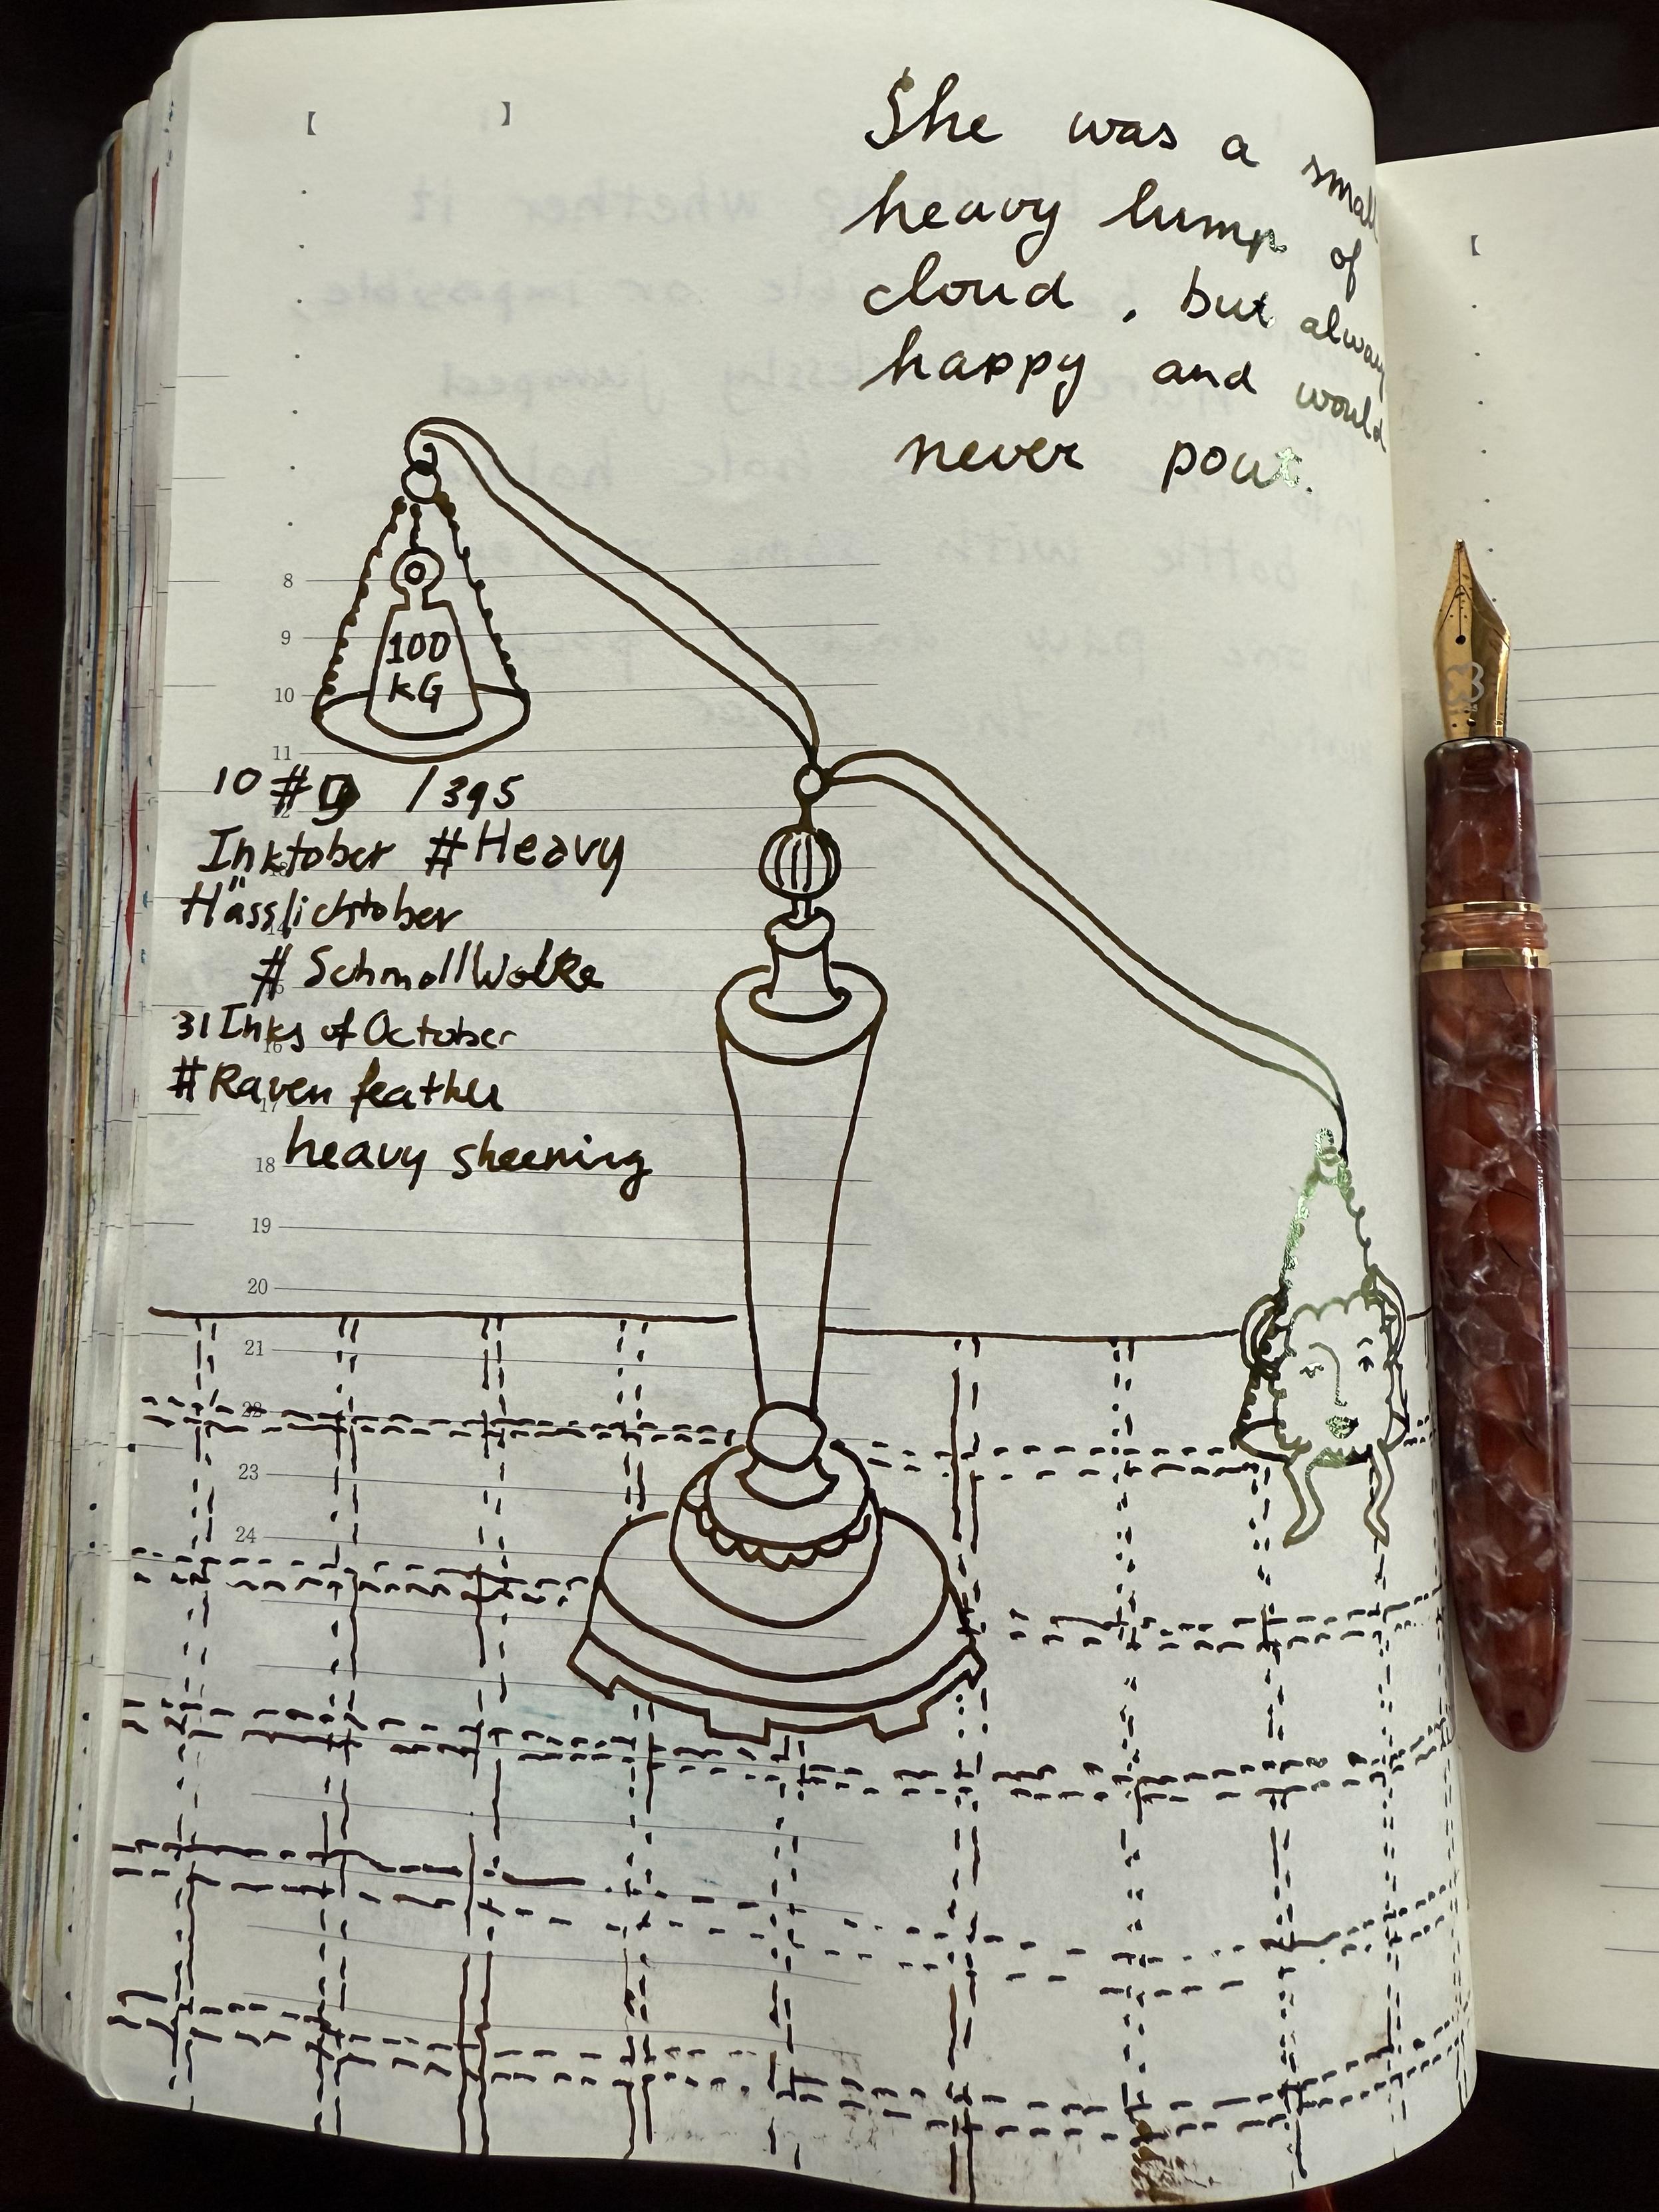 She was a small
heavy lump of
cloud, but always
happy and would
never pout.
100
KG
8
9
10
11
10 # 9 /395
Inktober #Heavy
Hässlichtober
# SchmollWolke
31 Inks of October
#Raven feather
heavy sheening
18
19
20
21
22
23
24